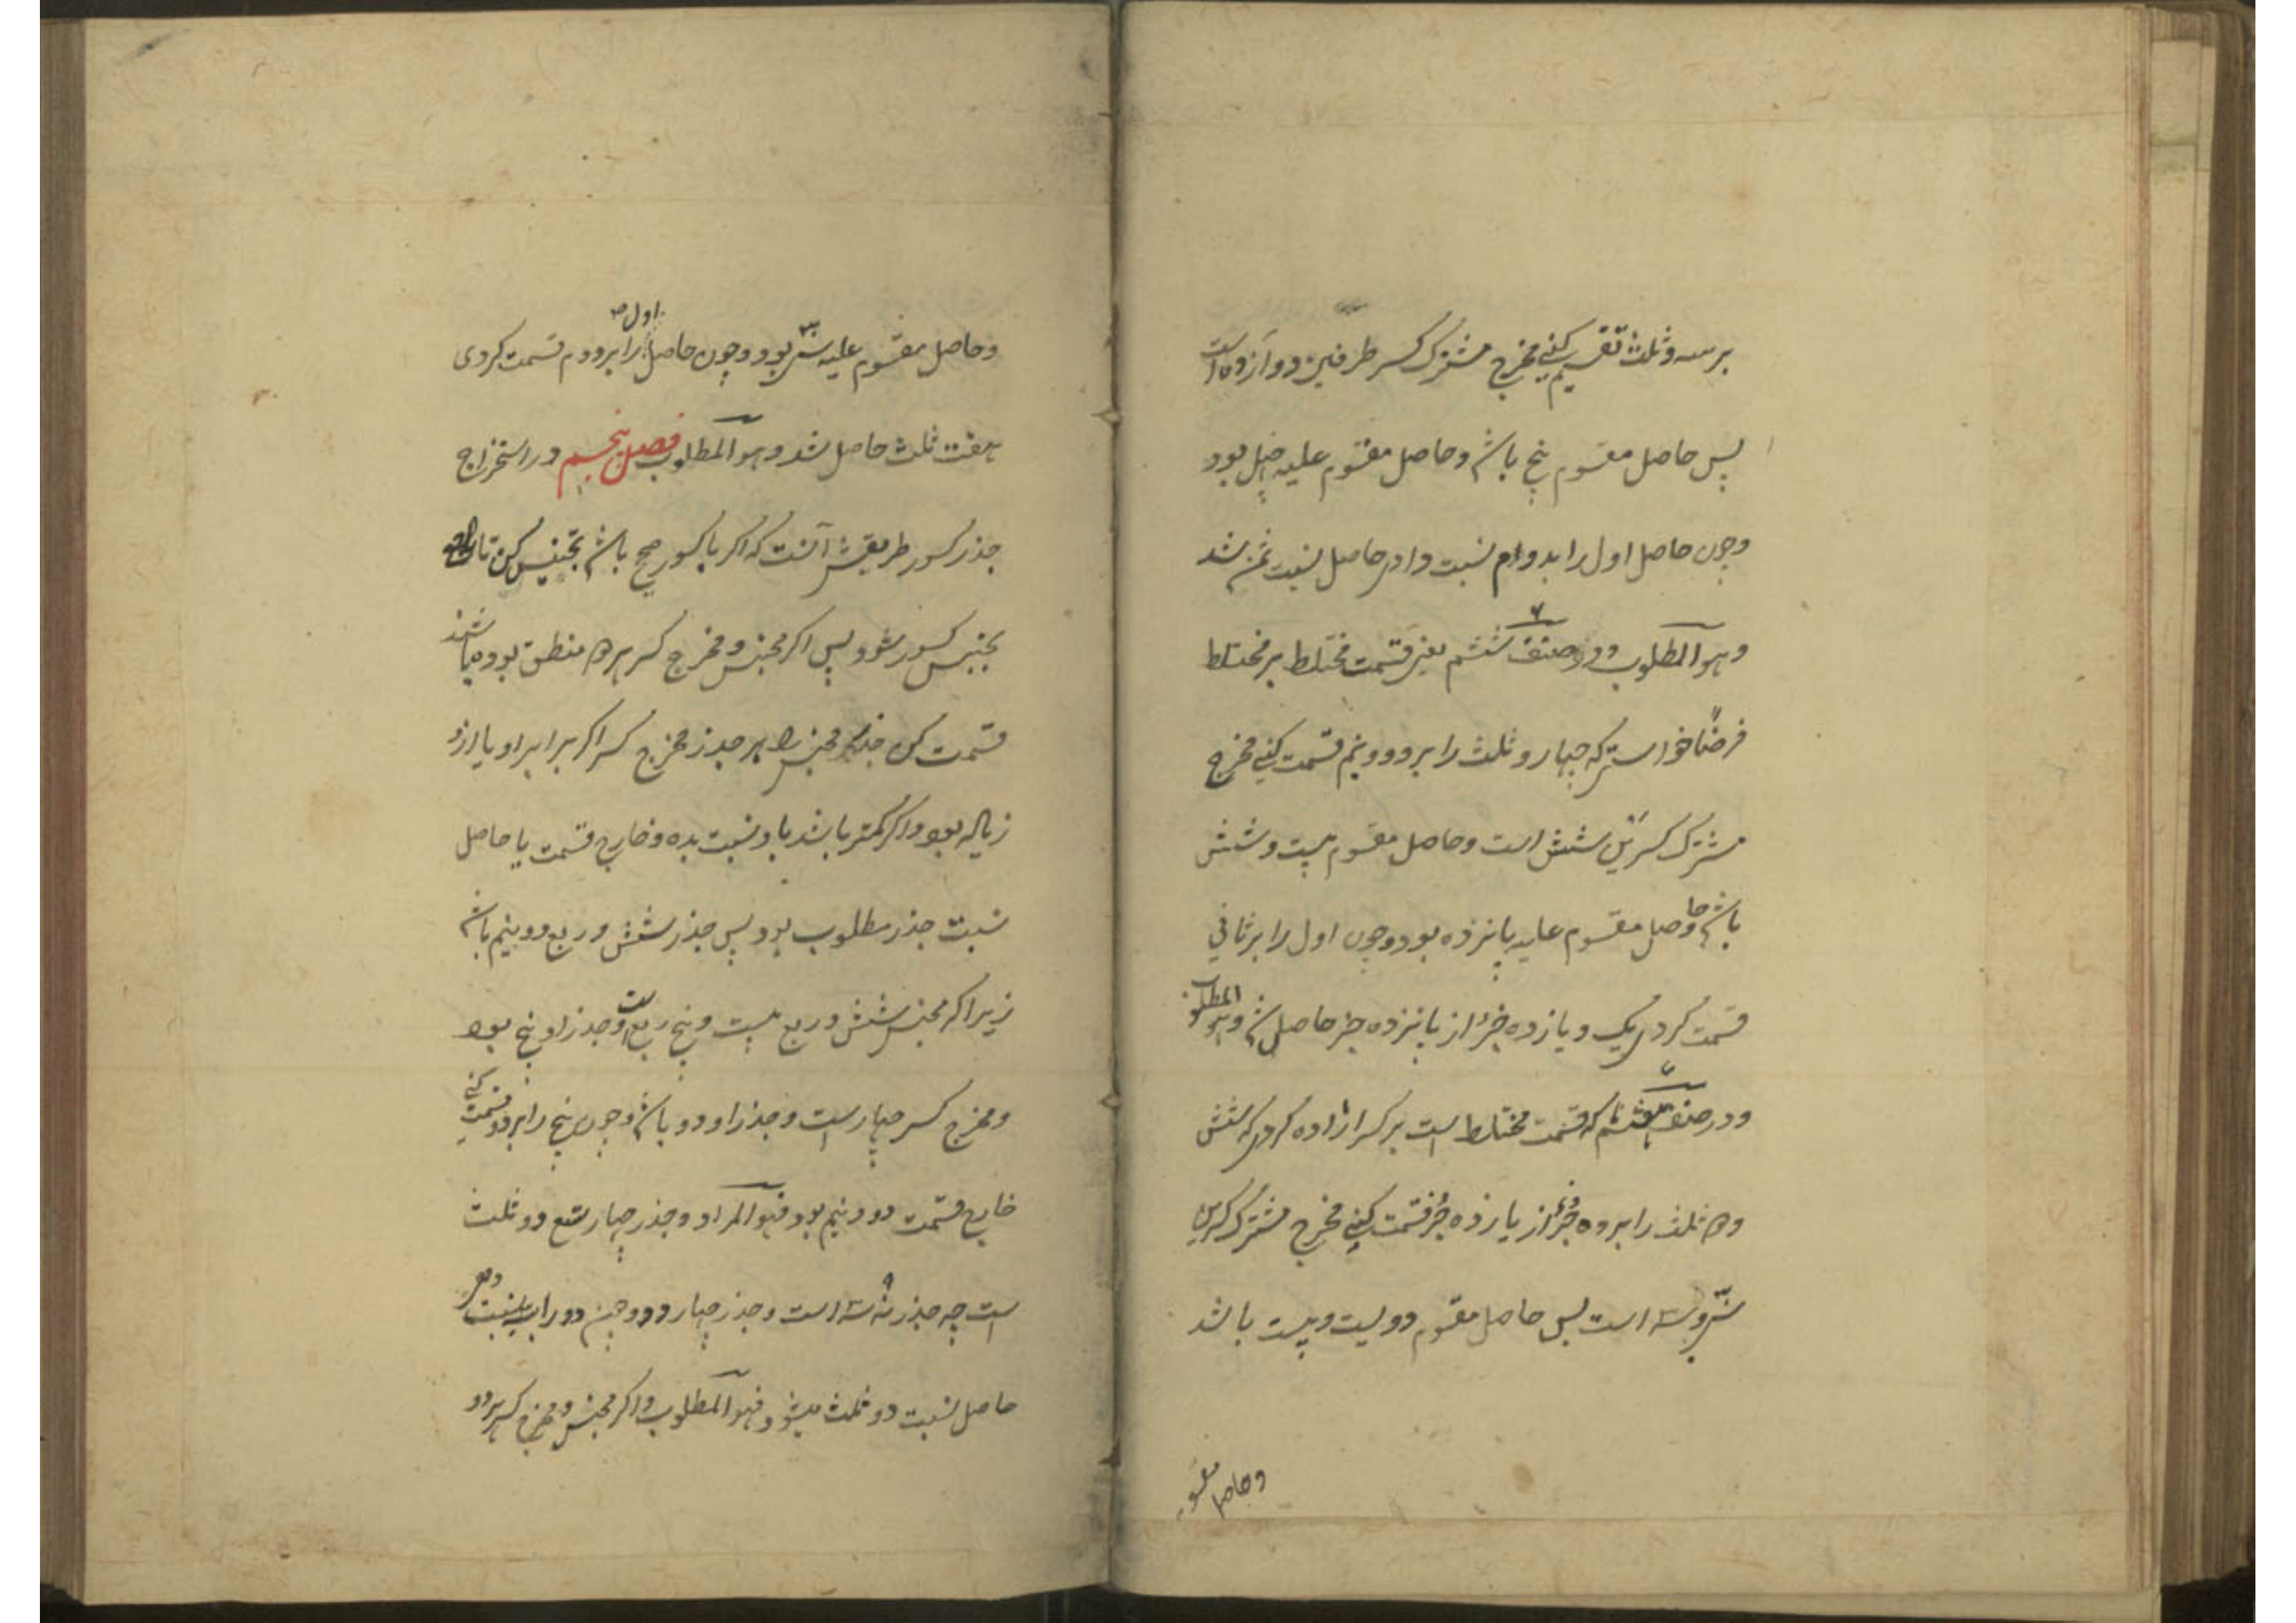 بر سه و ثلث تقسیم کنی مخرج مشترک کسر طرفین دوازده است
پس حاصل مقسوم پنج باشد و حاصل مقسوم علیه چهل بود
و چون حاصل اول را بدوام نسبت دادی حاصل نسبت ثمن شد
و هو المطلوب و در صنف ششم یعنی قسمت مختلط بر مختلط
فرضا خواستی که چهار و ثلث را بر دو و نیم قسمت کنی مخرج
مشترک کسرین شش است و حاصل مقسوم بیست و شش
باشد و حاصل مقسوم علیه پانزده بود و چون اول را بر ثانی
قسمت کردی یک و یازده جزء از پانزده جزء حاصل شد و هو المطلوب
و در صنف هفتم که قسمت مختلط است بر کسر اراده کردی که شش
و دو ثلث را بر ده جزء از یازده جزء قسمت کنی مخرج مشترک کسرین
سی و سه است پس حاصل مقسوم دویست و بیست باشد
و حاصل مقسوم
و حاصل مقسوم علیه سی بود و چون حاصل اول را بر دوم قسمت کردی
هفت ثلث حاصل شد و هو المطلوب فصل پنجم در استخراج
جذر کسور طریقش آنست که اگر با کسور صحیح باشد تجنیس کن تا
بجنس کسور شود پس اگر مجنس و مخرج کسر هر دو منطق بوده باشند
قسمت کن جذر مجنس را بر جذر مخرج کسر اگر برابر او یا ازو
زیاده بود و اگر کمتر باشد باو نسبت بده و خارج قسمت یا حاصل
نسبت جذر مطلوب بود پس جذر شش و ربع دو و نیم باشد
زیرا که مجنس شش و ربع بیست و پنج ربع است و جذر او پنج بود
و مخرج کسر چهار است و جذر او دو باشد و چون پنج را بر دو قسمت کنی
خارج قسمت دو و نیم بود فهو المراد و جذر چهار تسع دو ثلث
است چه جذر نه ۹ سه است و جذر چهار دو و چون دو را بسه نسبت دهی
حاصل نسبت دو ثلث میشود فهو المطلوب و اگر مجنس و مخرج کسر هر دو